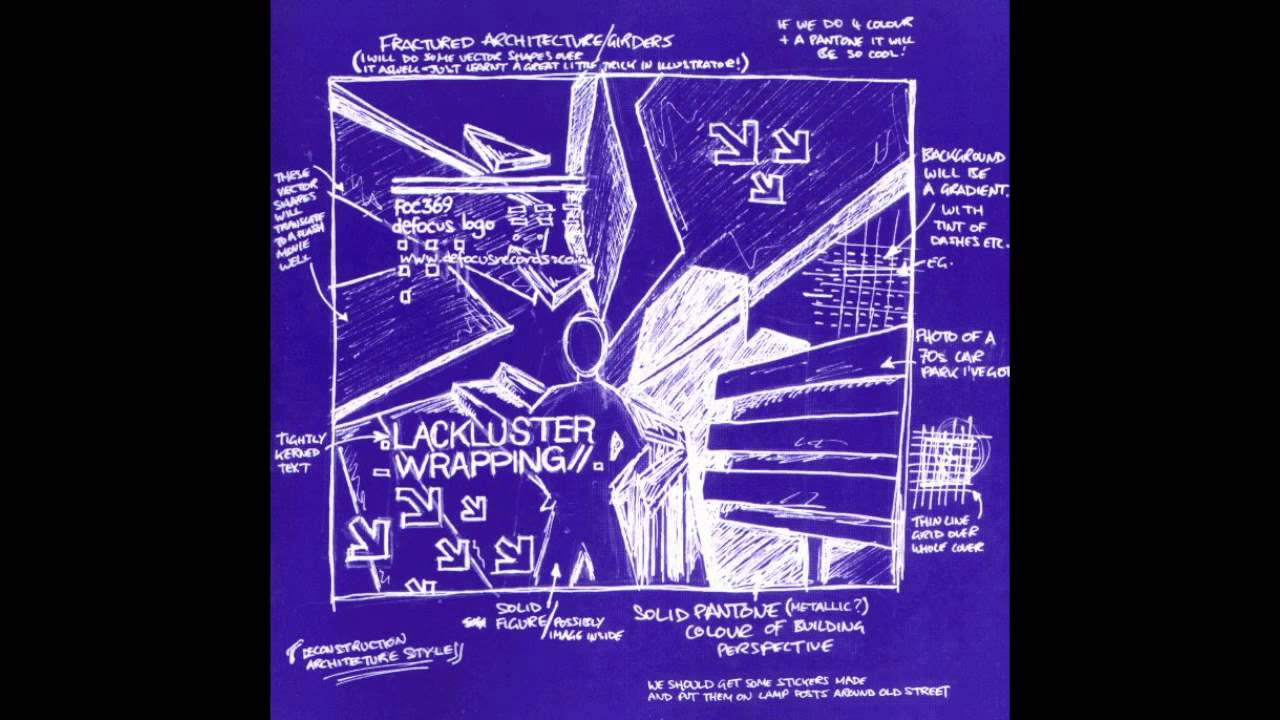 FRACTURED ARCHITECTURE/GIRDERS
(I WILL DO SOME VECTOR SHAPES OVER
IT ASWELL - JUST LEARNT A GREAT LITTLE TRICK IN ILLUSTRATOR!)
IF WE DO 4 COLOUR
+ A PANTONE IT WILL
BE SO COOL!
THESE
VECTOR
SHAPES
WILL
TRANSLATE
TO A FLASH
MOVIE
WELL
FOC369
defocus logo
www.defocusrecords.com
BACKGROUND
WILL BE
A GRADIENT.
WITH
TINT OF
DASHES ETC.
EG.
PHOTO OF A
70s CAR
PARK I'VE GOT
TIGHTLY
KERNED
TEXT
LACKLUSTER
WRAPPING//.
THIN LINE
GRID OVER
WHOLE COVER
SOLID
FIGURE/POSSIBLY
IMAGE INSIDE
SOLID PANTONE (METALLIC?)
COLOUR OF BUILDING
PERSPECTIVE
"DECONSTRUCTION
ARCHITECTURE STYLE"
WE SHOULD GET SOME STICKERS MADE
AND PUT THEM ON LAMP POSTS AROUND OLD STREET